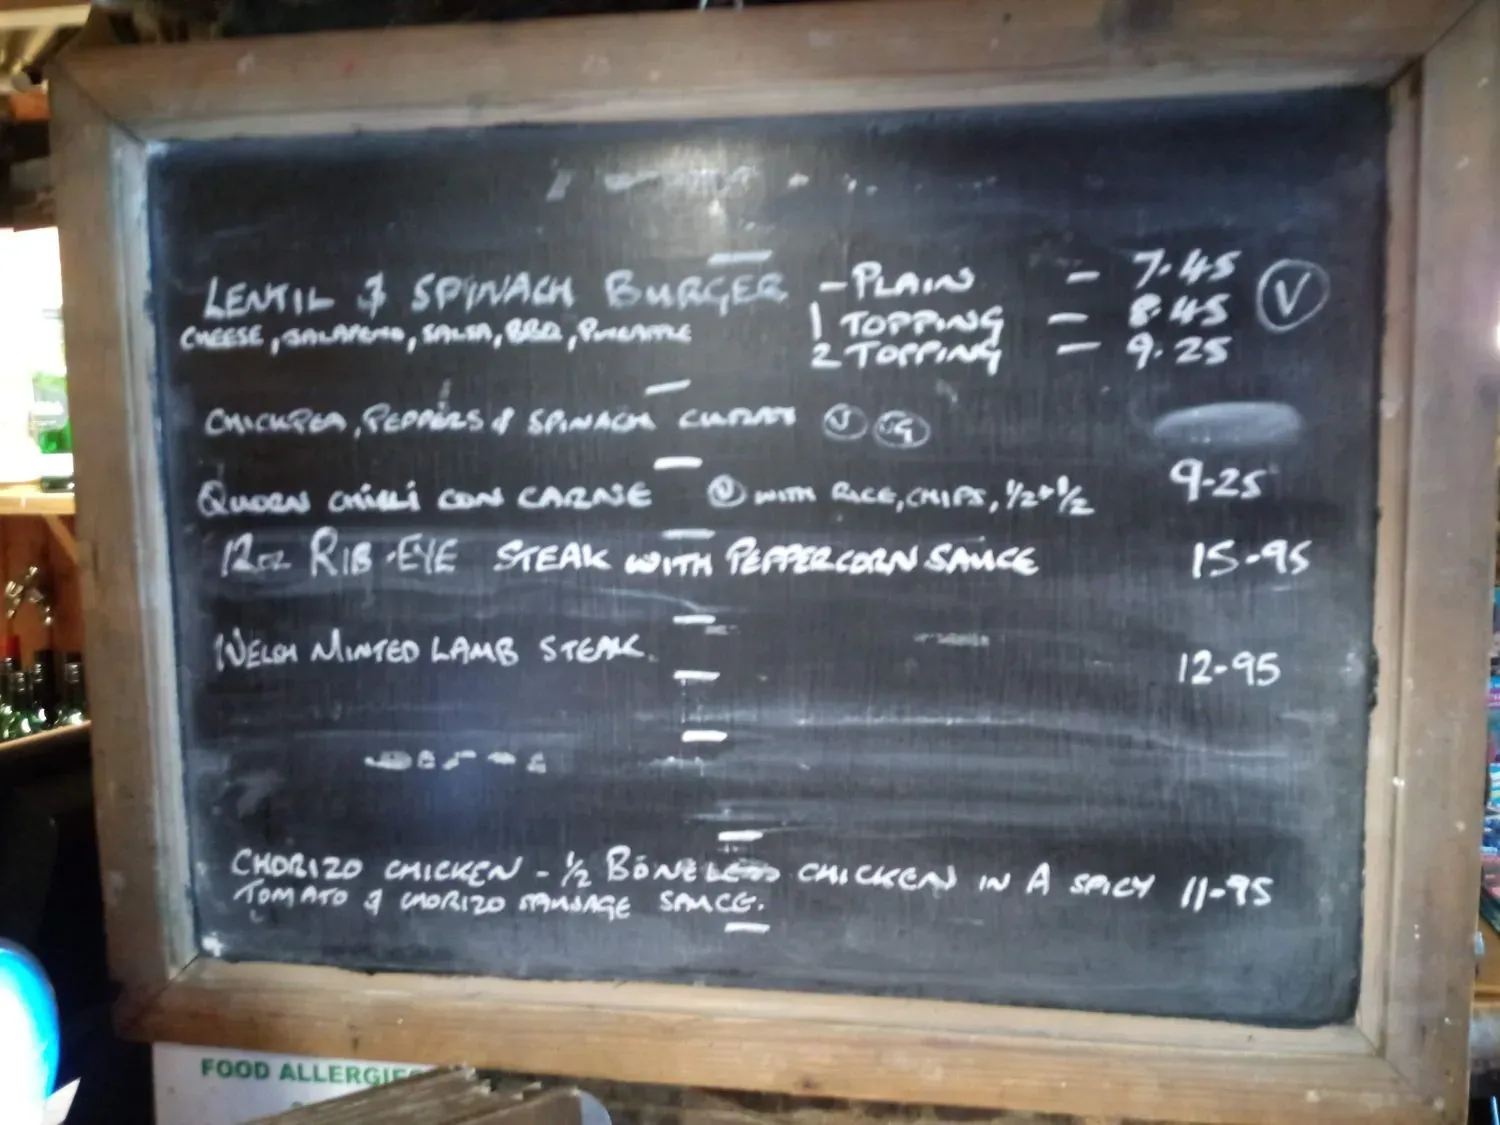 LENTIL & SPINACH BURGER - PLAIN - 7.45 V
CHEESE, JALAPENO, SALSA, BBQ, PINEAPPLE 1 TOPPING - 8.45
2 TOPPING - 9.25
CHICKPEA, PEPPERS & SPINACH V VG
QUORN CHILLI CON CARNE V WITH RICE, CHIPS, 1/2 + 1/2 9-25
12oz RIB-EYE STEAK WITH PEPPERCORN SAUCE 15-95
WELSH MINTED LAMB STEAK. 12-95
CHORIZO CHICKEN - 1/2 BONELESS CHICKEN IN A SPICY 11-95
TOMATO & CHORIZO SAUSAGE SAUCE.
FOOD ALLERGIES